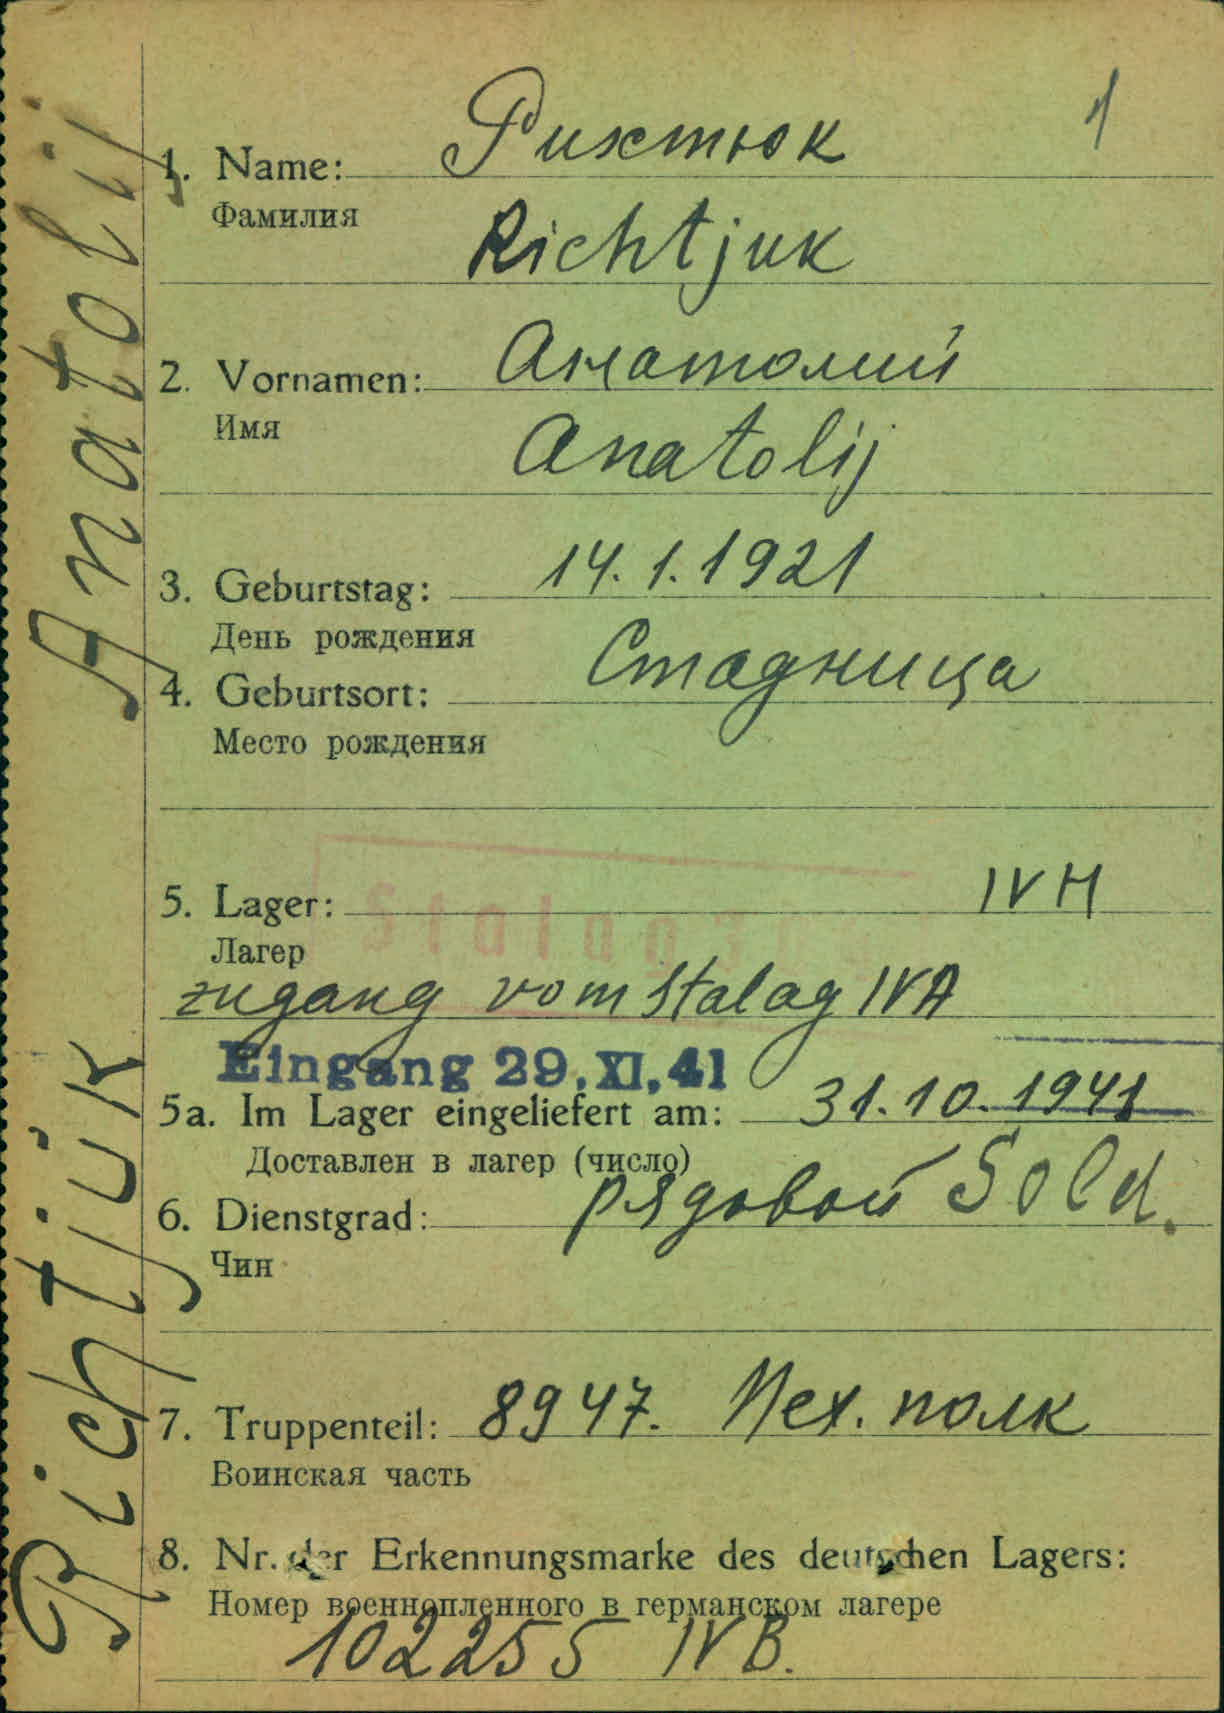 1
1. Name: Рихтюк
Фамилия
Richtjuk
2. Vornamen: Анатолий
Имя
Anatolij
3. Geburtstag: 14.1.1921
День рождения
4. Geburtsort: Стадница
Место рождения
5. Lager: IV H
Лагер
Stalag 304
zugang vom Stalag IVA
Eingang 29.XI.41
5a. Im Lager eingeliefert am: 31.10.1941
Доставлен в лагер (число)
6. Dienstgrad: рядовой Sold.
Чин
7. Truppenteil: 8947. Пех. полк
Воинская часть
8. Nr. der Erkennungsmarke des deutschen Lagers:
Номер военнопленного в германском лагере
102255 IV B.
Richtjük Anatolij